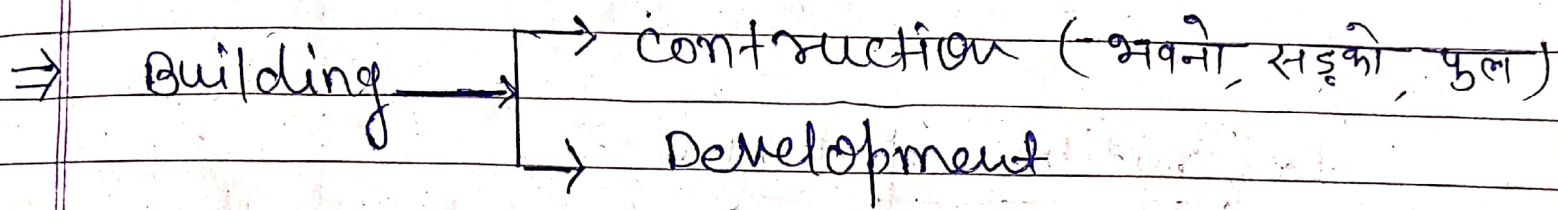 ⇒ Building → contruction (भवनो, सड़को, फुल)
→ Development